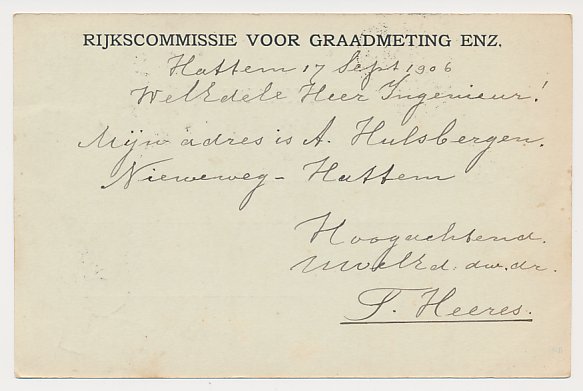 RIJKSCOMMISSIE VOOR GRAADMETING ENZ.
Hattem 17 Sept 1906
WelEdele Heer Ingenieur!
Mijn adres is A. Hulsbergen.
Nieweweg - Hattem
Hoogachtend.
UwelEd: dw. dr.
T. Heeres.